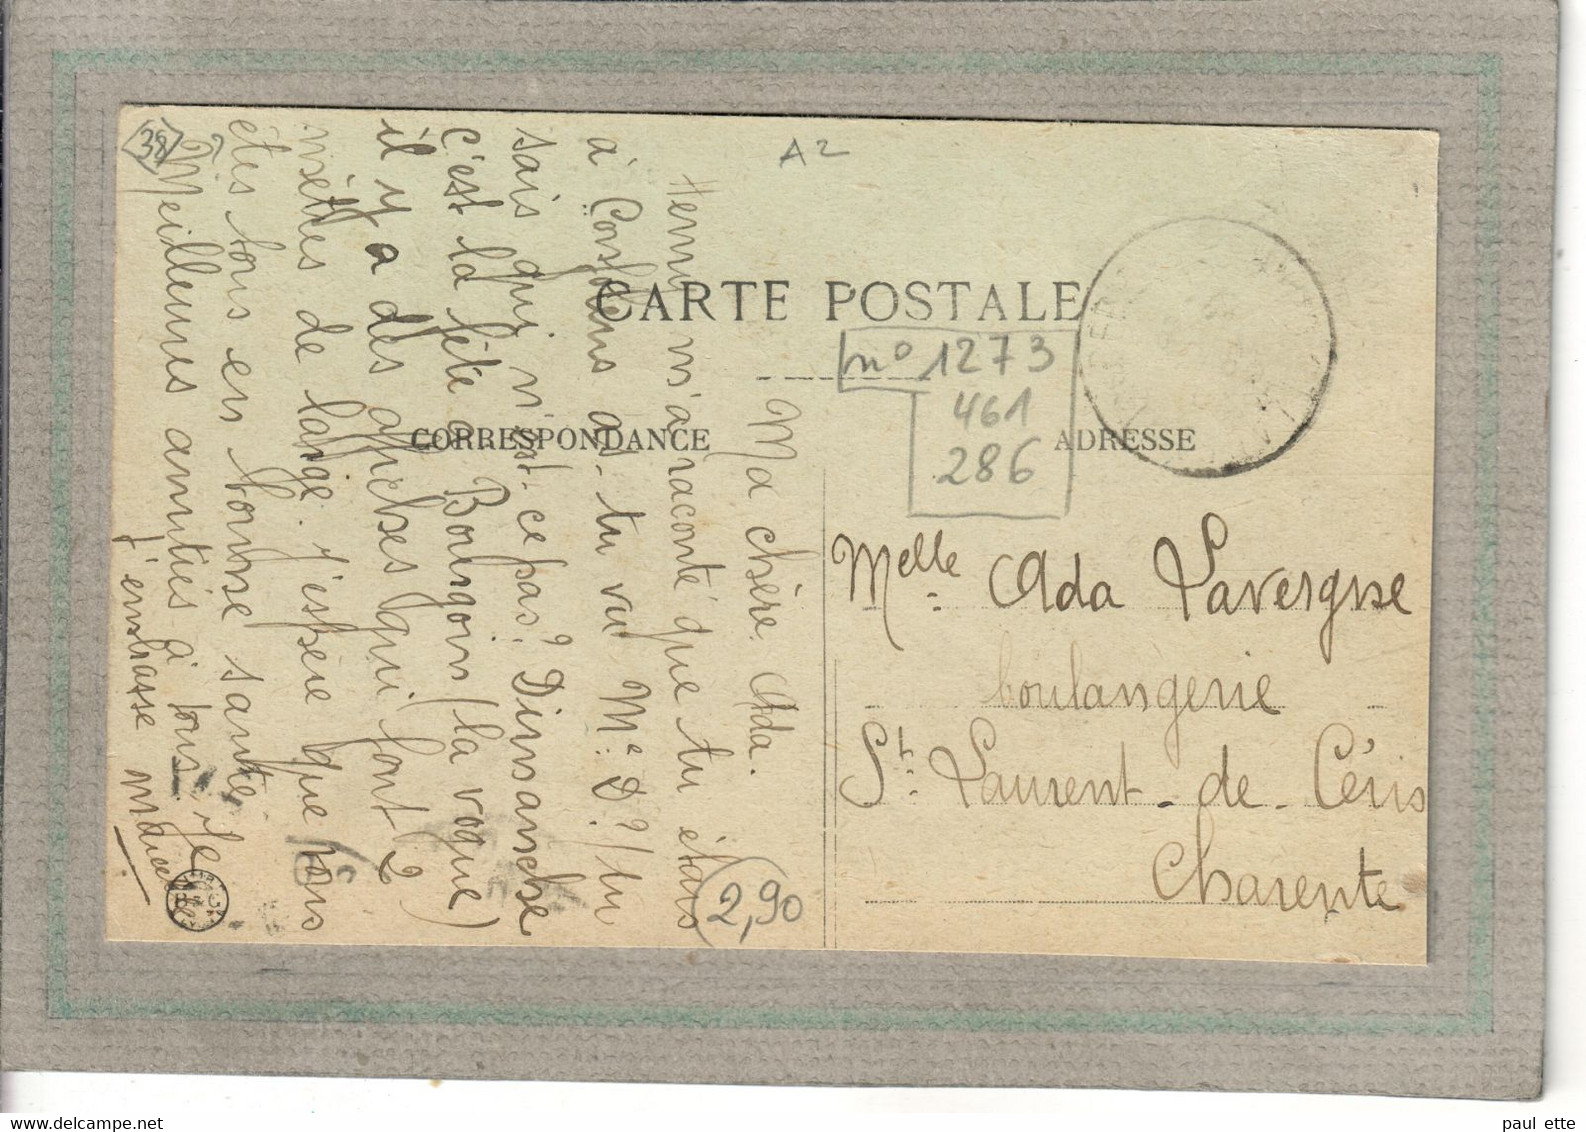 38
A2
CARTE POSTALE
n° 1273
461
286
CORRESPONDANCE
ADRESSE
Ma chère Ada.
Henri m'a raconté que tu étais
à Conflans as-tu vu Me D? (tu
sais qui n'est-ce pas? Dimanche
c'est la fête à Bourgoin (la vogue)
il y a des affiches qui font 2
mètres de large. J'espère que vous
êtes tous en bonne santé.
Meilleures amitiés à tous. Je
t'embrasse Marcel
2,90
Melle Ada Lavergne
boulangerie
St. Laurent-de-Céris
Charente
paul ette